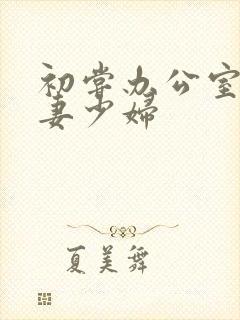 初尝办公室
妻少婦
夏美舞